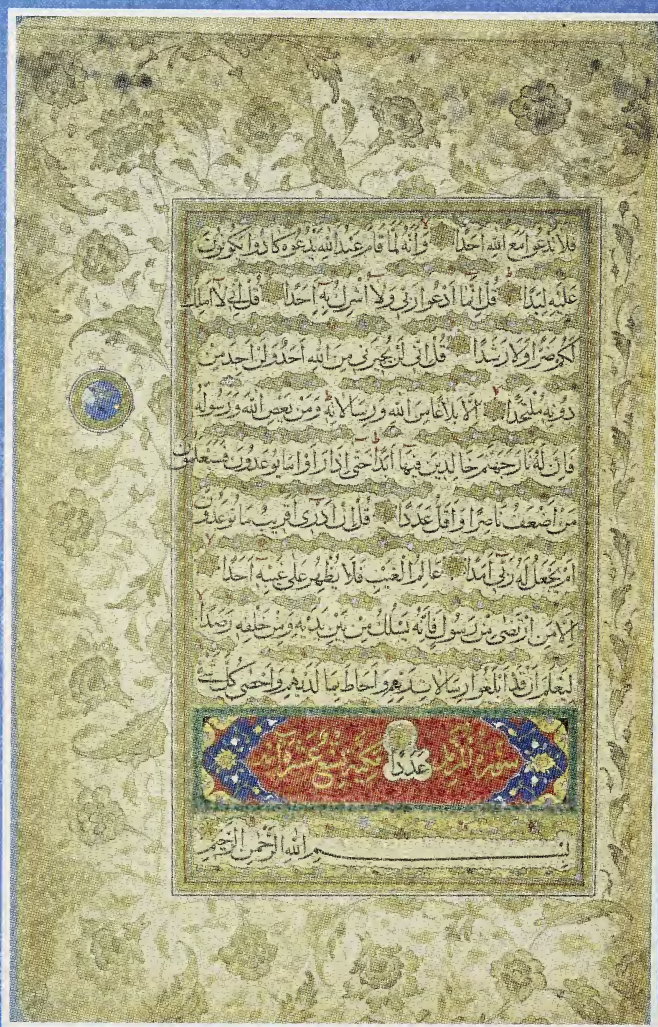 فَلَا تَدْعُوا مَعَ اللَّهِ أَحَدًا وَأَنَّهُ لَمَّا قَامَ عَبْدُ اللَّهِ يَدْعُوهُ كَادُوا يَكُونُونَ
عَلَيْهِ لِبَدًا قُلْ إِنَّمَا أَدْعُوا رَبِّي وَلَا أُشْرِكُ بِهِ أَحَدًا قُلْ إِنِّي لَا أَمْلِكُ
لَكُمْ ضَرًّا وَلَا رَشَدًا قُلْ إِنِّي لَنْ يُجِيرَنِي مِنَ اللَّهِ أَحَدٌ وَلَنْ أَجِدَ مِنْ
دُونِهِ مُلْتَحَدًا إِلَّا بَلَاغًا مِنَ اللَّهِ وَرِسَالَاتِهِ وَمَنْ يَعْصِ اللَّهَ وَرَسُولَهُ
فَإِنَّ لَهُ نَارَ جَهَنَّمَ خَالِدِينَ فِيهَا أَبَدًا حَتَّى إِذَا رَأَوْا مَا يُوعَدُونَ فَسَيَعْلَمُونَ
مَنْ أَضْعَفُ نَاصِرًا وَأَقَلُّ عَدَدًا قُلْ إِنْ أَدْرِي أَقَرِيبٌ مَا تُوعَدُونَ
أَمْ يَجْعَلُ لَهُ رَبِّي أَمَدًا عَالِمُ الْغَيْبِ فَلَا يُظْهِرُ عَلَى غَيْبِهِ أَحَدًا
إِلَّا مَنِ ارْتَضَى مِنْ رَسُولٍ فَإِنَّهُ يَسْلُكُ مِنْ بَيْنِ يَدَيْهِ وَمِنْ خَلْفِهِ رَصَدًا
لِيَعْلَمَ أَنْ قَدْ أَبْلَغُوا رِسَالَاتِ رَبِّهِمْ وَأَحَاطَ بِمَا لَدَيْهِمْ وَأَحْصَى كُلَّ شَيْءٍ
سورة المزمل عَدَدًا مكية تسع عشر آية
بِسْمِ اللَّهِ الرَّحْمَنِ الرَّحِيمِ